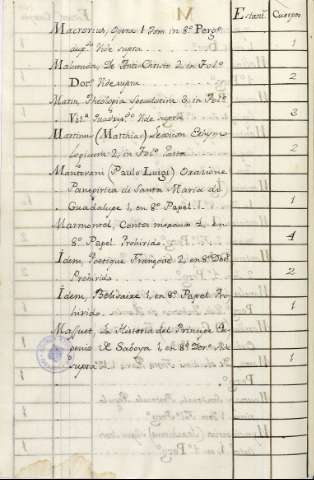 M Estan.ᵗ Cuerpos
Macrovius, Opera 1 Tom in 8º Pergº
Vide supra 1
Malvenda, De Anti-Christo 2, in Folº
Docº Vide supra 2
Marin, Theologia Speculativa 3, in Folº
Vide supra 3
Martinii (Mathiæ) Lexicon
2, in Folº Pasta 2
Mantovani (Paulo Luigi) Orazione
Panegirica di Santa Maria di
Guadalupe 1, en 8º Papel 1
Marmontel, Contes moraux 4, en
8º Papel Prohivido 4
Idem, Poetique Françoise 2 en 8º
Prohivido 2
Idem, Belisaire 1, en 8º Papel Pro
hivido 1
Massuet, La Historia del Principe Eu
genio de Saboya 1, en 8º Vide
supra 1